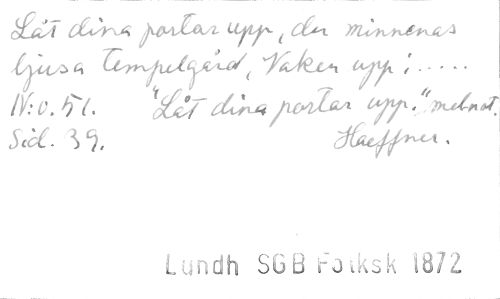 Låt dina portar upp, du minnenas
ljusa tempelgård, Vaken upp! .....
N:o. 51. "Låt dina portar upp." mel. not.
Sid. 39. Haeffner.
Lundh SGB Folksk 1872